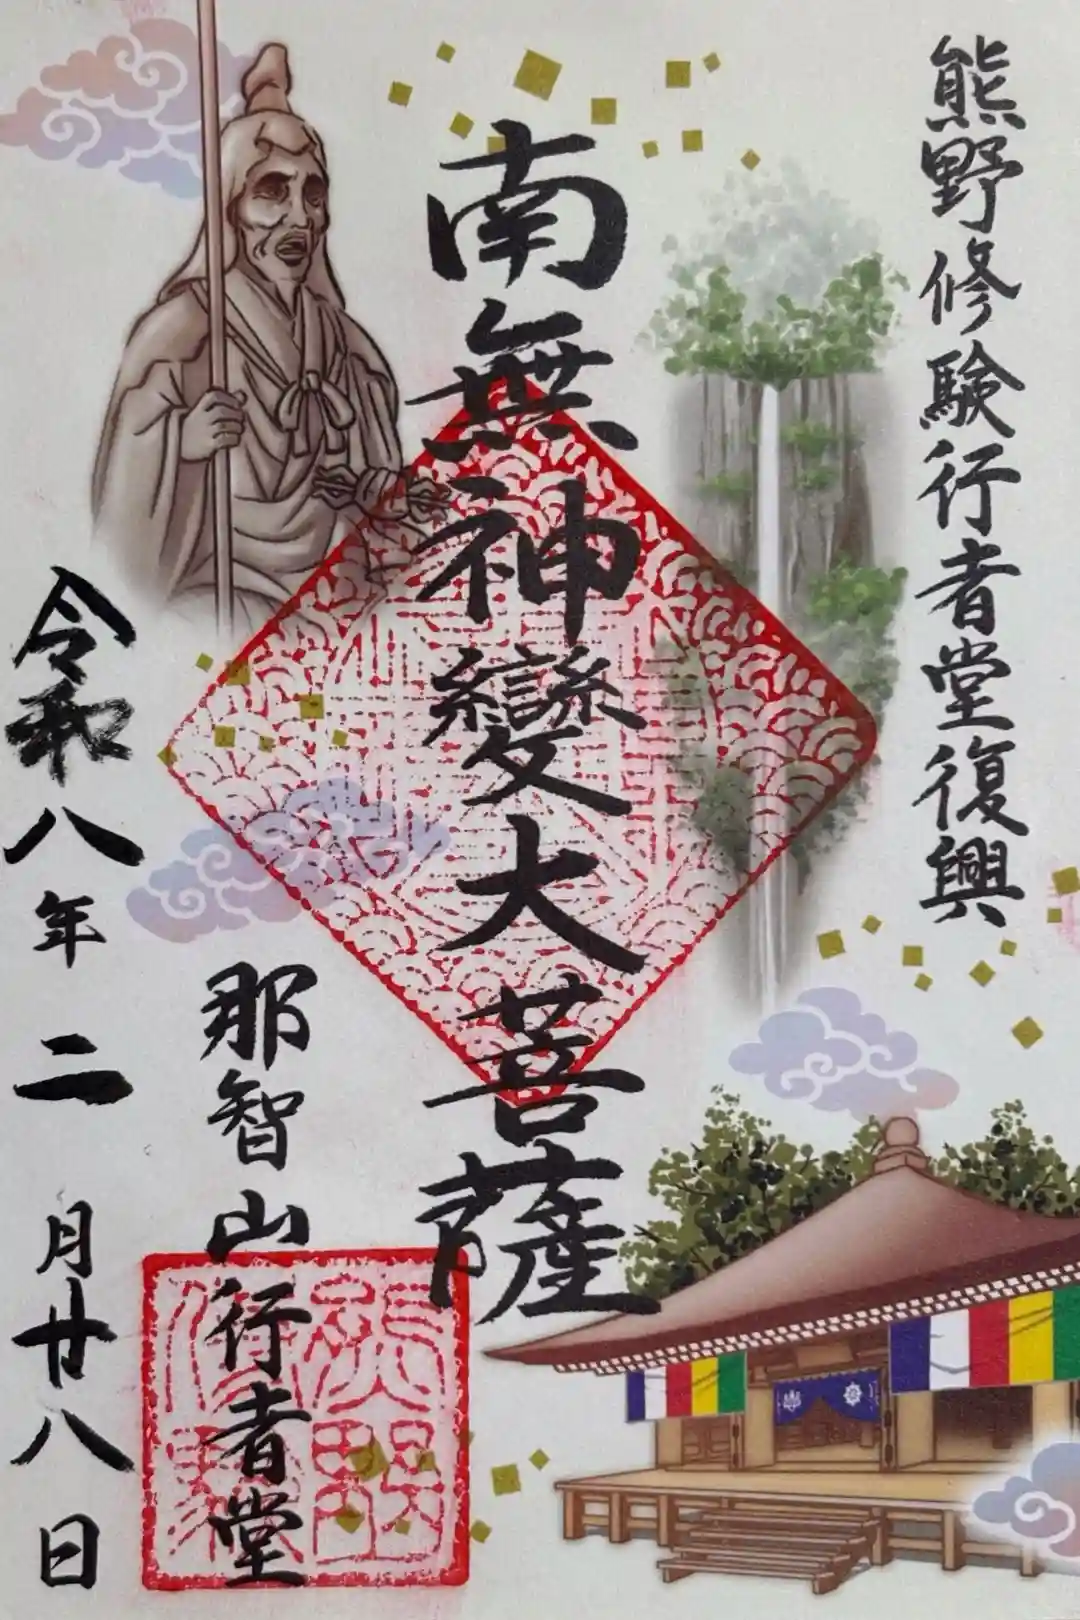 熊野修験行者堂復興
南無神變大菩薩
那智山行者堂
令和八年二月廿八日